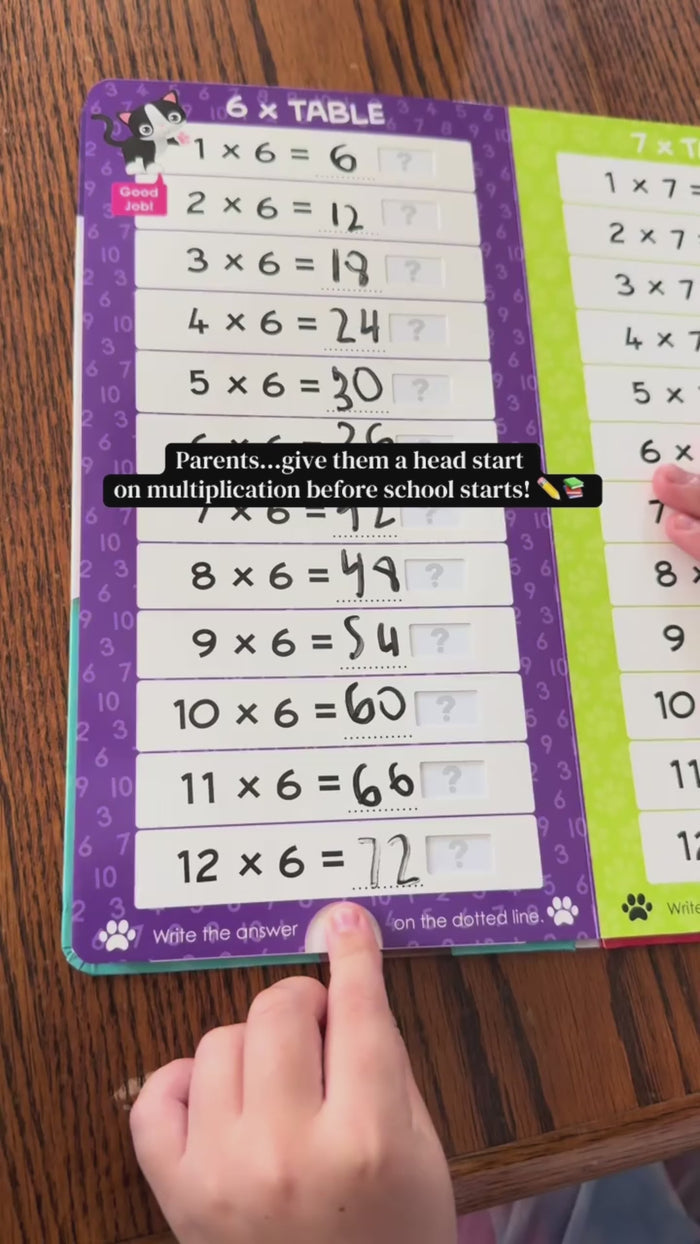 6 x TABLE
Good
Job!
1 x 6 = 6 ?
2 x 6 = 12 ?
3 x 6 = 18 ?
4 x 6 = 24 ?
5 x 6 = 30 ?
Parents...give them a head start
on multiplication before school starts! ✏️📚
7 x 6 = 42 ?
8 x 6 = 48 ?
9 x 6 = 54 ?
10 x 6 = 60 ?
11 x 6 = 66 ?
12 x 6 = 72 ?
Write the answer on the dotted line.
7 x T
1 x 7 =
2 x 7
3 x 7
4 x 7
5 x
6 x
7
8 x
9
10
11
12
Write